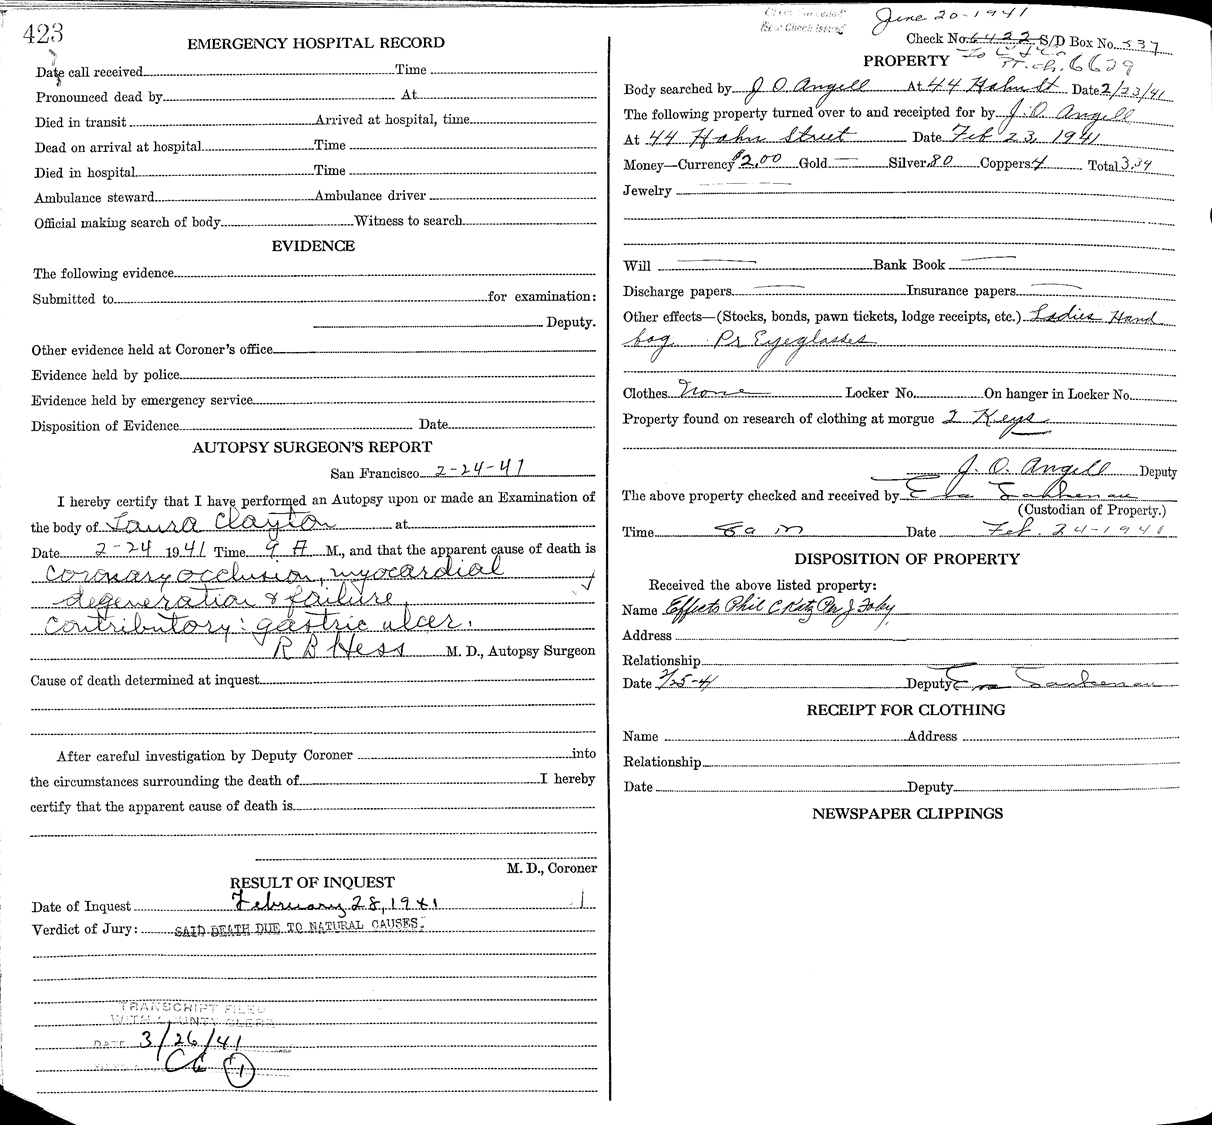 423
EMERGENCY HOSPITAL RECORD
Date call received Time
Pronounced dead by At
Died in transit Arrived at hospital, time
Dead on arrival at hospital Time
Died in hospital Time
Ambulance steward Ambulance driver
Official making search of body Witness to search
EVIDENCE
The following evidence
Submitted to for examination:
Deputy.
Other evidence held at Coroner's office
Evidence held by police
Evidence held by emergency service
Disposition of Evidence Date
AUTOPSY SURGEON'S REPORT
San Francisco 2-24-41
I hereby certify that I have performed an Autopsy upon or made an Examination of
the body of Laura Clayton at
Date 2-24 1941 Time 9 A M., and that the apparent cause of death is
coronary occlusion, myocardial
degeneration & failure
contributory: gastric ulcer.
R B Hess M. D., Autopsy Surgeon
Cause of death determined at inquest
After careful investigation by Deputy Coroner into
the circumstances surrounding the death of I hereby
certify that the apparent cause of death is
M. D., Coroner
RESULT OF INQUEST
Date of Inquest February 28, 1941
Verdict of Jury: SAID DEATH DUE TO NATURAL CAUSES.
TRANSCRIPT FILED
WITH COUNTY CLERK
DATE 3/26/41
CC 1
June 20-1941
Check No. 6422 S/D Box No. 537
PROPERTY 6629
Body searched by J O Angell At 44 Hahn St Date 2/23/41
The following property turned over to and receipted for by J. O. Angell
At 44 Hahn Street Date Feb 23, 1941
Money—Currency $2.00 Gold — Silver .80 Coppers 4 Total 3.34
Jewelry
Will Bank Book
Discharge papers Insurance papers
Other effects—(Stocks, bonds, pawn tickets, lodge receipts, etc.) Ladies Hand
bag Pr Eyeglasses
Clothes None Locker No. On hanger in Locker No.
Property found on research of clothing at morgue 2 Keys
J. O. Angell Deputy
The above property checked and received by Eva
(Custodian of Property.)
Time 8 a m Date Feb. 24-1941
DISPOSITION OF PROPERTY
Received the above listed property:
Name Effects Phil C Katz Per J Foley
Address
Relationship
Date 2/25-41 Deputy Eva
RECEIPT FOR CLOTHING
Name Address
Relationship
Date Deputy
NEWSPAPER CLIPPINGS